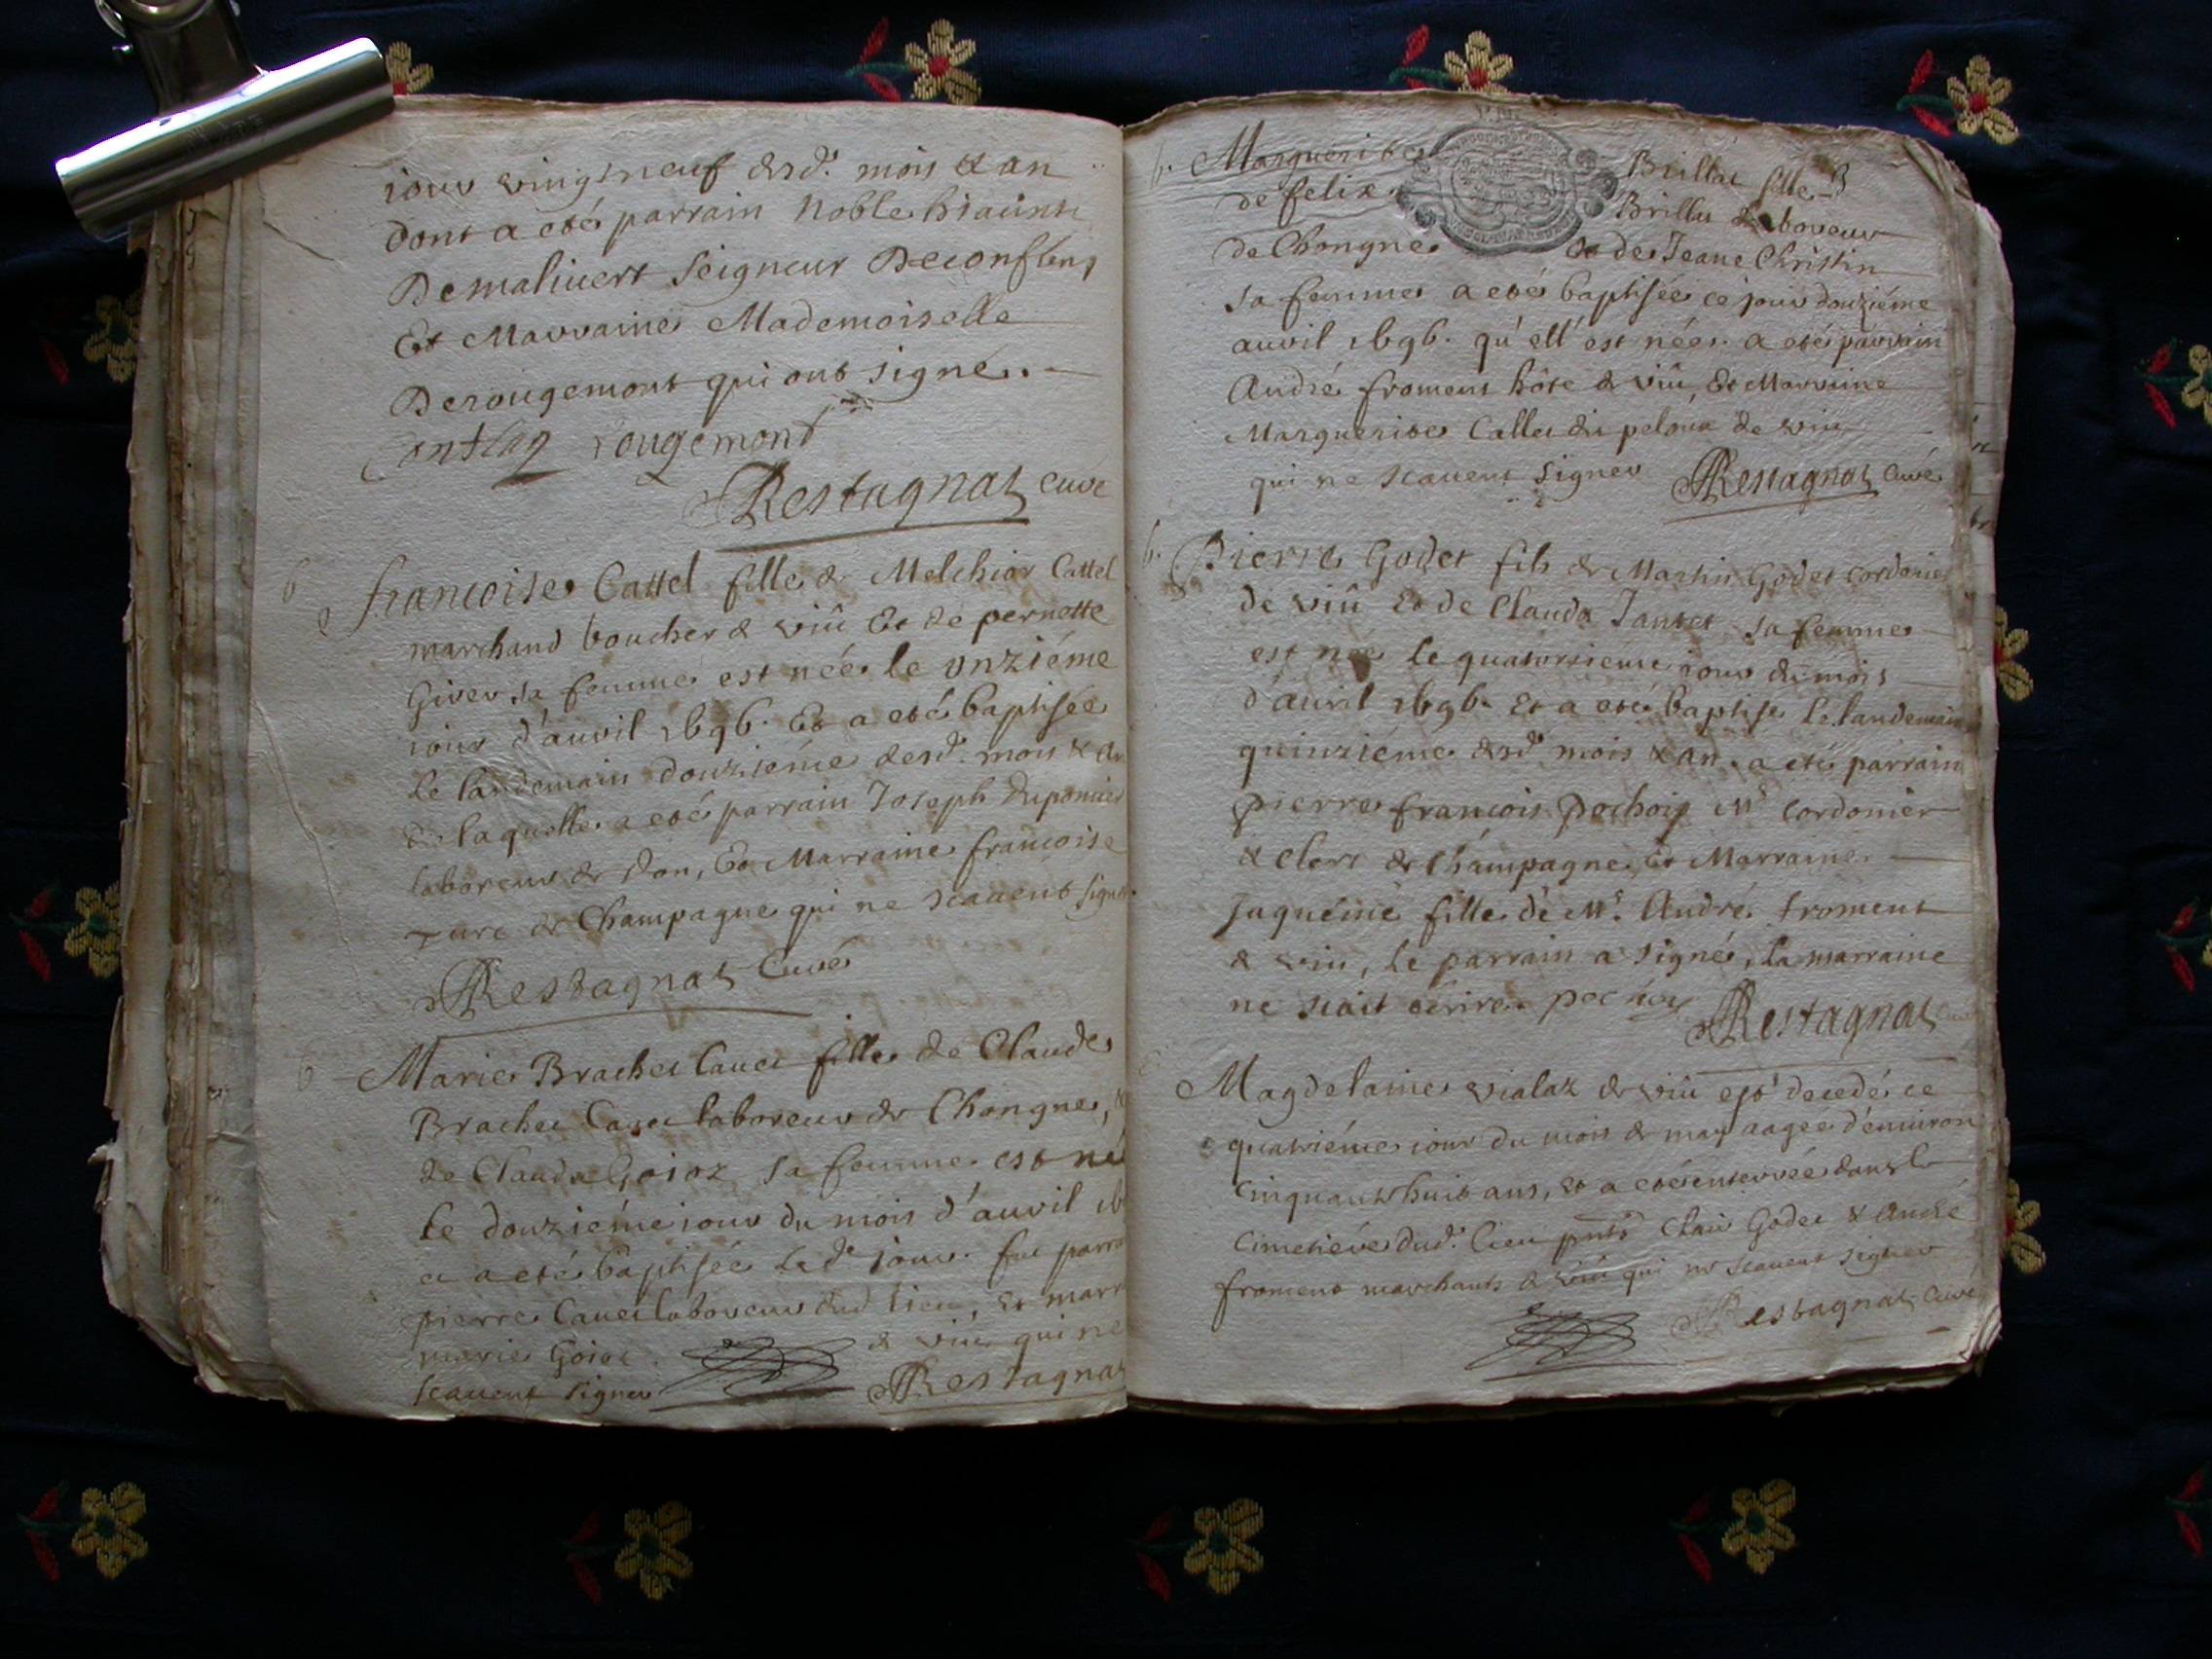 iour vingtneuf desd. mois & an
dont a eté parrain Noble hiacinte
Demaliuert Seigneur Deconflens
Et Marraine Mademoiselle
Derougemont qui ont signé.
Rougemont
Restagnat curé
b
francoise Cattel fille de Melchior Cattel
marchand boucher de viû Et de pernette
sa femme est née le vnziéme
iour d'auril 1696. Et a eté baptisée
le landemain douziéme desd. mois & an
de laquelle a eté parrain Joseph duponier
laboreur de don, Et Marraine francoise
de Champagne qui ne scauent signer
Restagnat Curé
b
Marie Brachet Cauet fille de Claude
Brachet Cauet laboreur de Chongne, &
de Clauda Goioz sa femme est né
le douziéme iour du mois d'auril 16
et a eté baptisée led. iour. fut parra
pierre Cauet laboreur dud lieu, Et marr
marie Goioz de viû qui ne
scauent signer Restagnat
b. Marguerite Brillat fille
de felix Brillat Laboreur
de Chongne et de Jeane Christin
sa femme a eté baptisée ce jour douziéme
auril 1696. qu'ell'est née. a eté parrain
André froment hôte de viû, Et Marraine
Marguerite Callet du peloux de viû
qui ne scauent signer Restagnat Curé
b. Pierre Godet fils de Martin Godet cordonier
de viû Et de Clauda Jantet sa femme
est née le quatorsieme iour du mois
d'auril 1696. Et a eté baptise le landemain
quinziéme desd. mois & an. a eté parrain
pierre francois Pochoy Mr. cordonier
& clerc de Champagne, Et Marraine
Jaqueme fille de Mr. André froment
de viû, le parrain a signé, la marraine
ne scait écrire. pochoy Restagnat
Magdelaine vialaz de viû est decedé ce
quatriéme iour du mois de may aagée d'enuiron
cinquante huit ans, et a eté enterrée dans le
cimetiére dud. lieu pnts Clair Godet & André
froment marchants de viû qui ne scauent signer
Restagnat curé